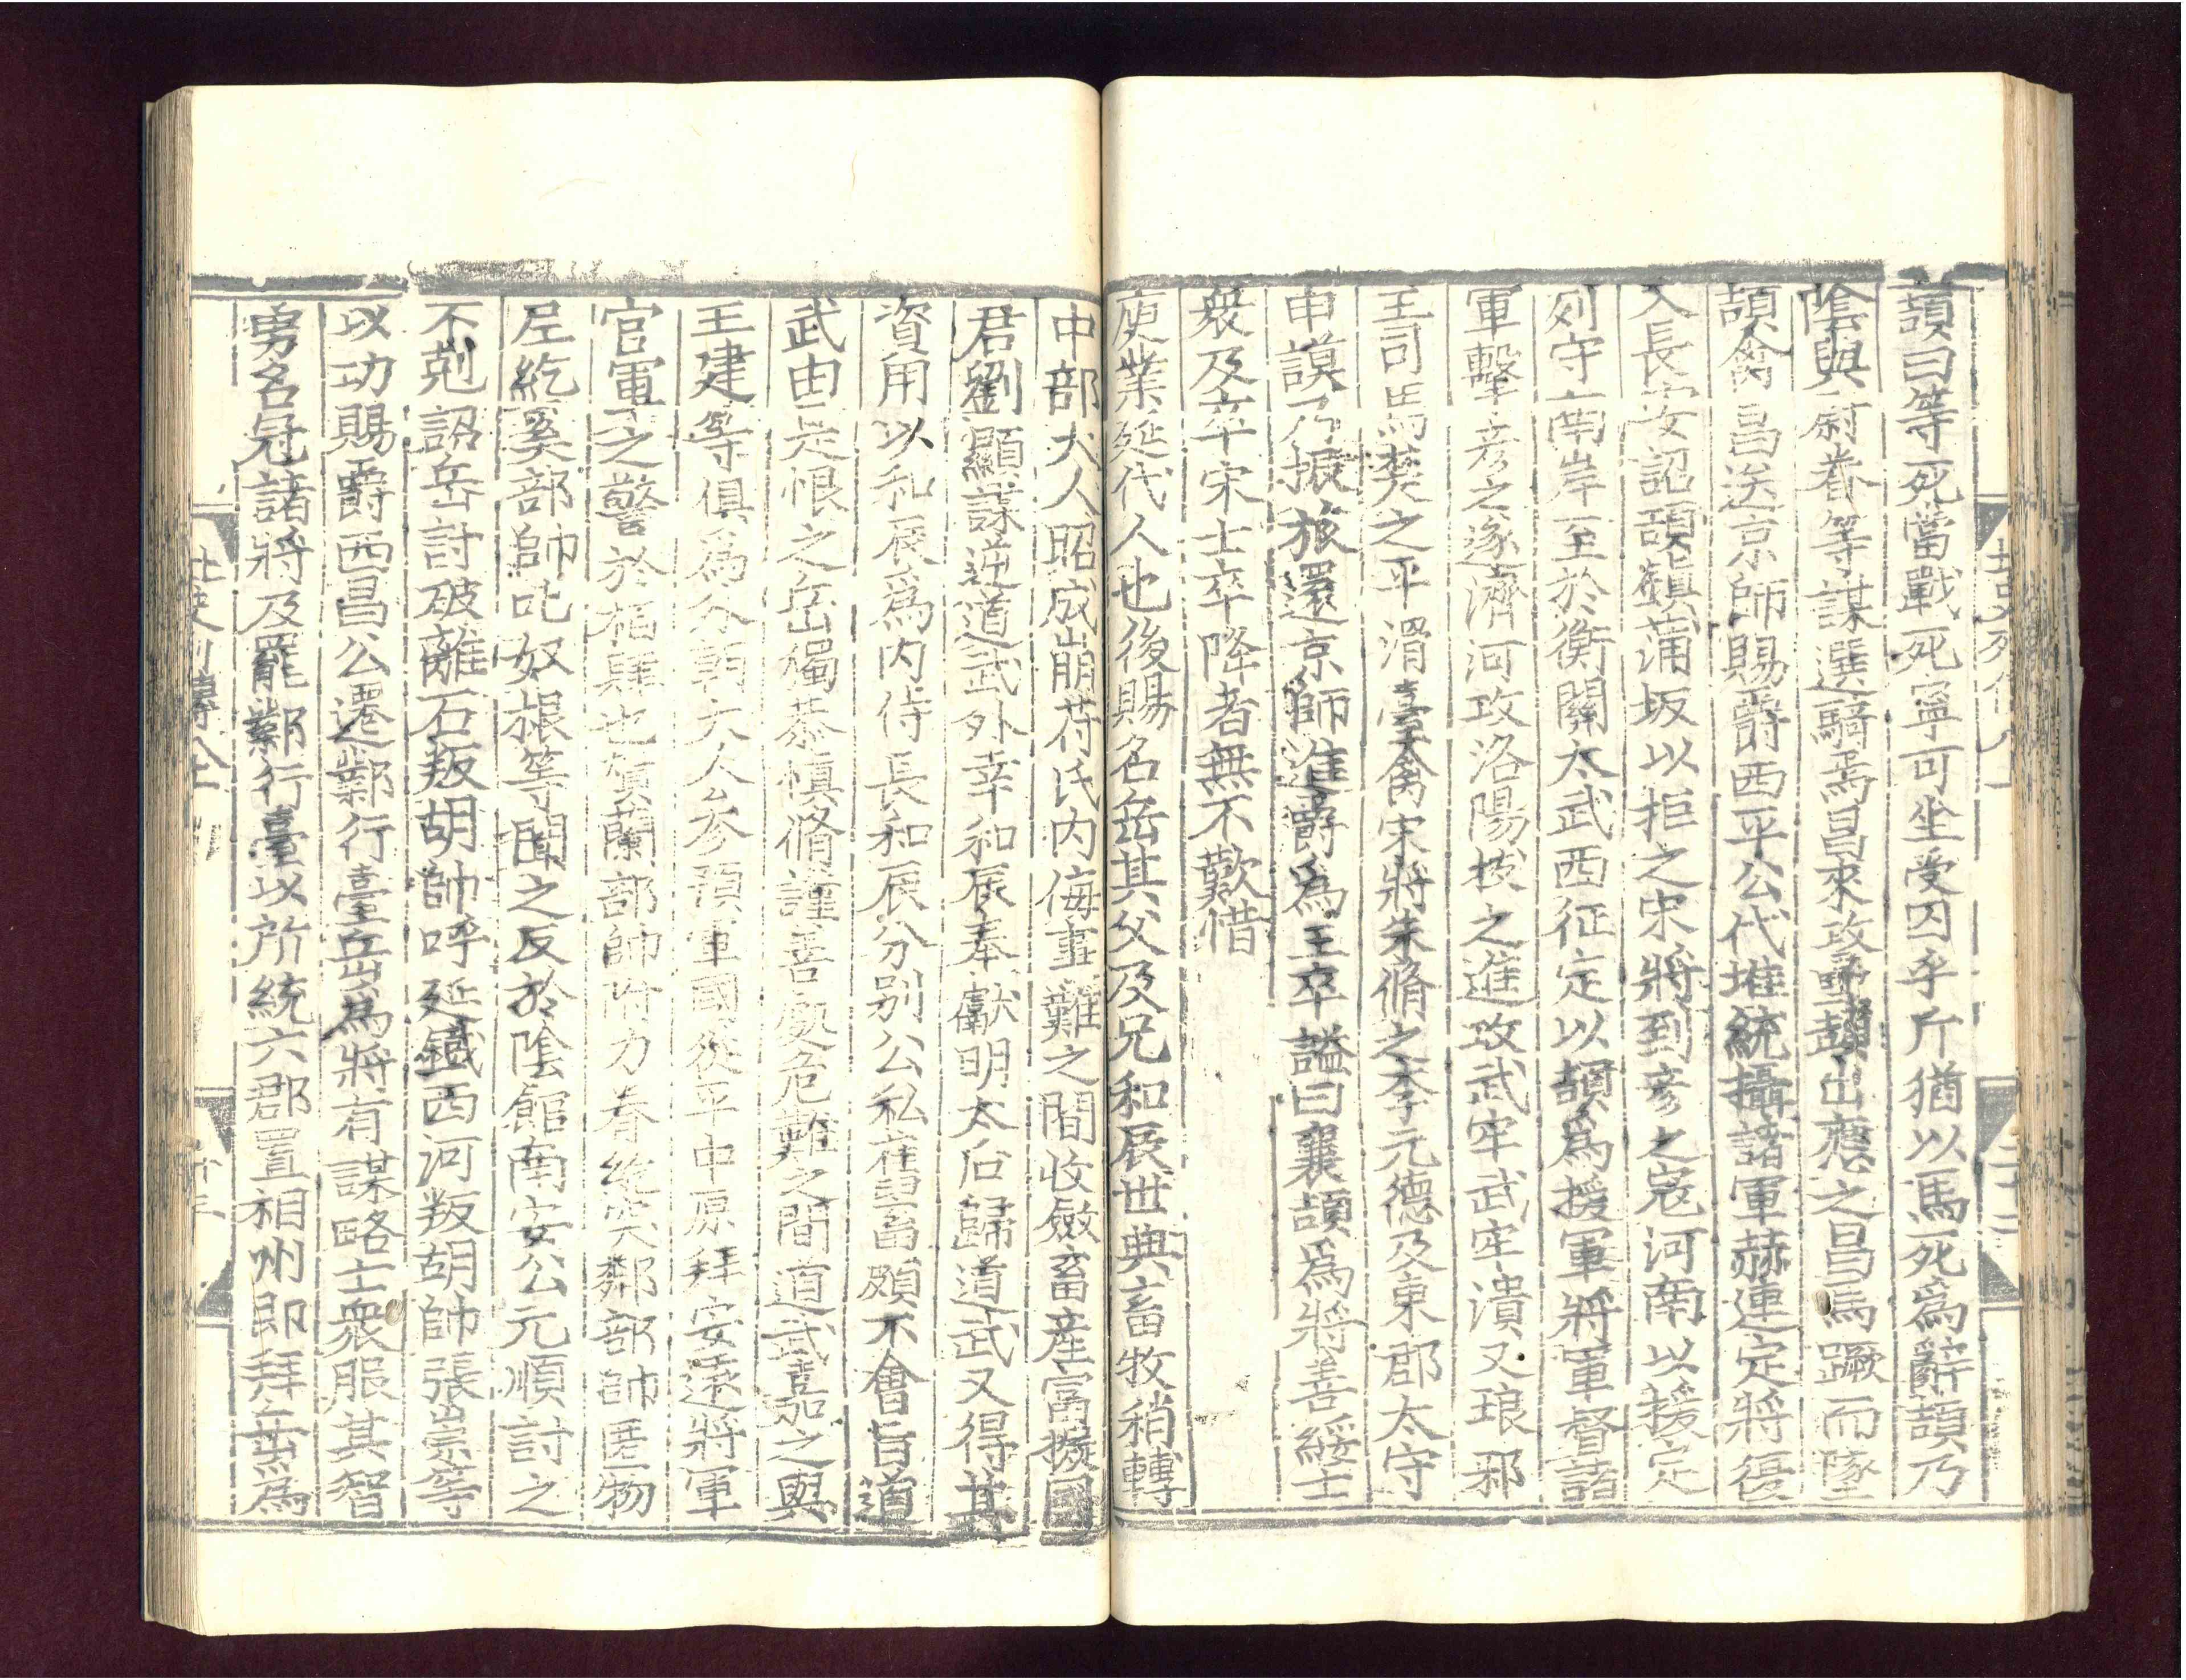 頡曰等死當戰死寧可坐受囚乎斤猶以馬死為辭頡乃
陰與尉眷等謀選騎焉昌來攻壘頡出應之昌馬蹶而墜
頡禽昌送京師賜爵西平公代堆統攝諸軍赫連定將復
入長安詔頡鎮蒲坂以拒之宋將到彥之寇河南以援定
列守南岸至於衡關太武西征定以頡為援軍將軍督諸
軍擊彥之遂濟河攻洛陽拔之進攻武牢武牢潰又琅邪
王司馬楚之平滑臺禽宋將朱脩之李元德及東郡太守
申謨乃振旅還京師進爵為王卒謚曰襄頡為將善綏士
衆及卒宋士卒降者無不歎惜
庾業延代人也後賜名岳其父及兄和辰世典畜牧稍轉
中部大人昭成崩苻氏內侮事難之間收斂畜產富擬國
君劉顯謀逆道武外幸和辰奉獻明太后歸道武又得其
資用以和辰爲內侍長和辰分別公私舊畜頗不會旨道
武由是恨之岳獨恭慎脩謹善處危難之間道武嘉之與
王建等俱爲外朝大人參預軍國從平中原拜安遠將軍
官軍之警於栢肆也賀蘭部帥附力眷紇突鄰部帥匿物
尼紇奚部帥叱奴根等聞之反於陰館南安公元順討之
不剋詔岳討破離石叛胡帥呼延鐵西河叛胡帥張崇等
以功賜爵西昌公遷鄴行臺岳為將有謀略士衆服其智
勇名冠諸將及罷鄴行臺以所統六郡置相州即拜岳為
北史列傳